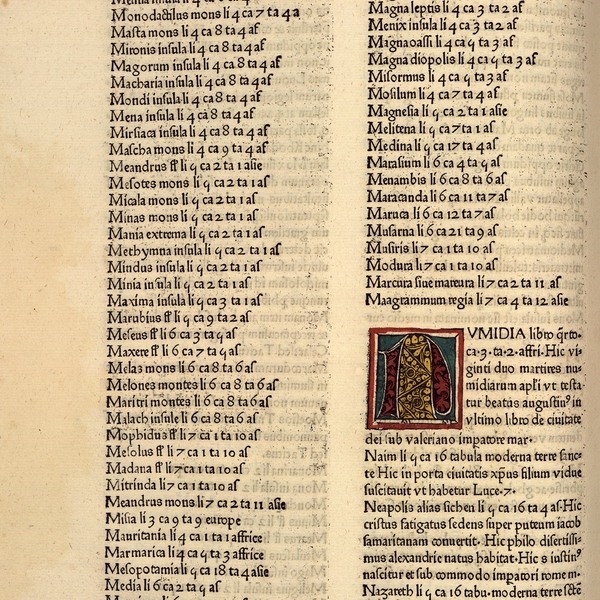 Monodactilus mons li 4 ca 7 ta 4 a
Masta mons li 4 ca 8 ta 4 af
Mironis insula li 4 ca 8 ta 4 af
Magorum insula li 4 ca 8 ta 4 af
Macharia insula li 4 ca 8 ta 4 af
Mondi insula li 4 ca 8 ta 4 af
Mena insula li 4 ca 8 ta 4 af
Mirsiaca insula li 4 ca 8 ta 4 af
Mascha mons li 4 ca 9 ta 4 af
Meandrus ff li ꝗ ca 2 ta 1 asie
Mesotes mons li ꝗ ca 2 ta 1 af
Micala mons li ꝗ ca 2 ta 1 af
Minas mons li ꝗ ca 2 ta 1 af
Mania extrema li ꝗ ca 2 ta 1 af
Methymna insula li ꝗ ca 2 ta 1 af
Mindus insula li ꝗ ca 2 ta 1 af
Minia insula li ꝗ ca 2 ta 1 af
Maxima insula li ꝗ ca 3 ta 1 af
Marubius ff li ꝗ ca 9 ta 2 af
Meseus ff li 6 ca 3 ta ꝗ af
Maxere ff li 6 ca 7 ta ꝗ af
Melas mons li 6 ca 8 ta 6 af
Melones montes li 6 ca 8 ta 6 af
Maritri montes li 6 ca 8 ta 6 af
Malach insule li 6 ca 8 ta 6 af
Mophidus ff li 7 ca 1 ta 10 af
Mesolus ff li 7 ca 1 ta 10 af
Madana ff li 7 ca 1 ta 10 af
Mitrinda li 7 ca 1 ta 10 af
Meandrus mons li 7 ca 2 ta 11 asie
Misia li 3 ca 9 ta 9 europe
Mauritania li 4 ca 1 ta 1 affrice
Marmarica li 4 ca ꝗ ta 3 affrice
Mesopotamia li ꝗ ca 18 ta 4 asie
Media li 6 ca 2 ta ꝗ af
Magna leptis li 4 ca 3 ta 2 af
Menix insula li 4 ca 3 ta 2 af
Magna oassi li 4 ca ꝗ ta 3 af
Magna diopolis li 4 ca ꝗ ta 3 af
Misormus li 4 ca ꝗ ta 3 af
Mosilum li 4 ca 7 ta 4 af
Magnesia li ꝗ ca 2 ta 1 asie
Melitena li ꝗ ca 7 ta 1 af
Medina li ꝗ ca 17 ta 4 af
Marasium li 6 ca 4 ta ꝗ af
Menambis li 6 ca 8 ta 6 af
Maracanda li 6 ca 11 ta 7 af
Maruca li 6 ca 12 ta 7 af
Musarna li 6 ca 21 ta 9 af
Musiris li 7 ca 1 ta 10 af
Modura li 7 ca 1 ta 10 af
Marcura siue mareura li 7 ca 2 ta 11 af
Maagrammum regia li 7 ca 4 ta 12 asie
NVMIDIA libro q̄rto.
ca. 3. ta. 2. affri. Hic vi-
ginti duo martires nu-
midiarum apl̄i vt testa
tur beatus augustiꝰ in
vltimo libro de ciuitate
dei sub valeriano impatore mar.
Naim li ꝗ ca 16 tabula moderna terre sanc-
te Hic in porta ciuitatis xp̄us filium vidue
suscitauit vt habetur Luce. 7.
Neapolis alias sichen li ꝗ ca 16 ta 4 af. Hic
cristus fatigatus sedens super puteum iacob
samaritanam conuertit. Hic philo disertissi-
mus alexandrie natus habitat. Hic s iustiꝰ
nascitur et sub commodo impatori rome m.
Nazareth li ꝗ ca 16 tabu. moderna terre sc̄te